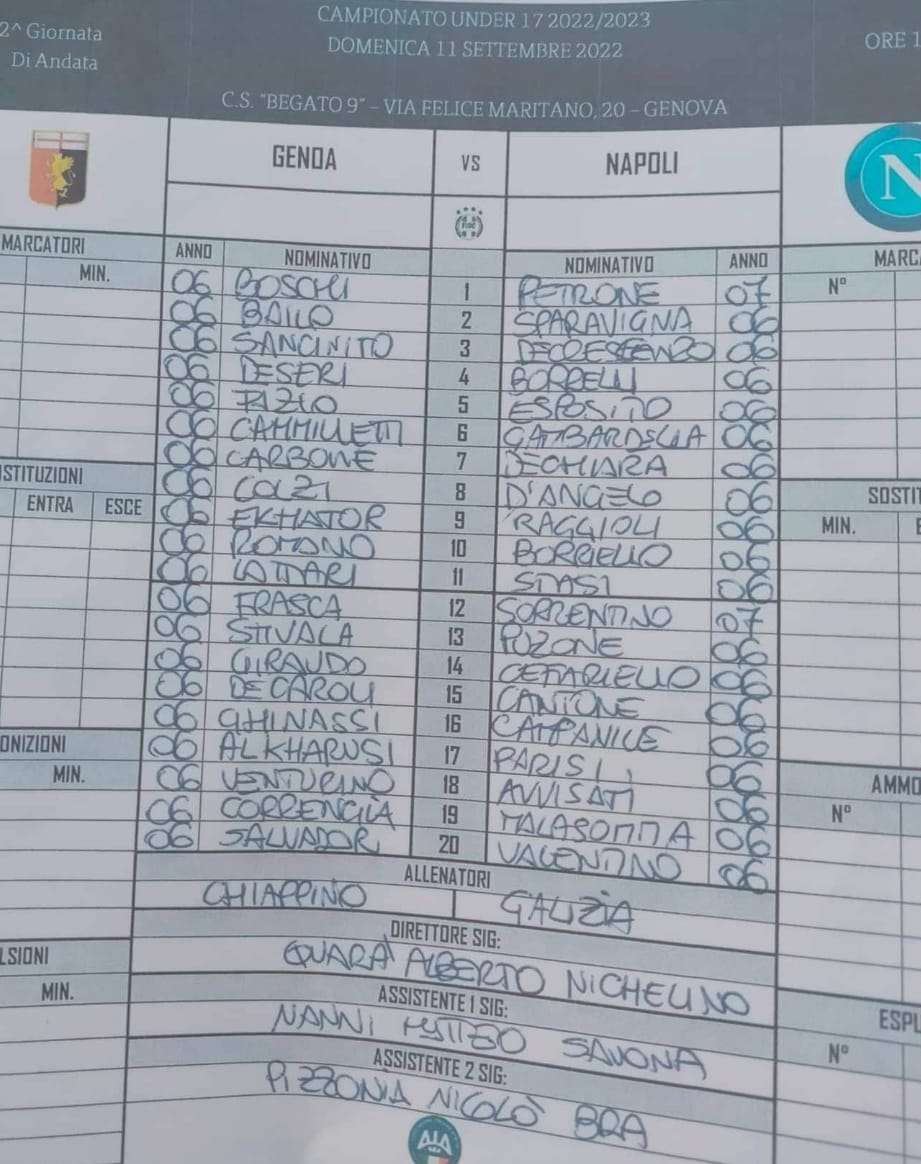 2^ Giornata
Di Andata
CAMPIONATO UNDER 17 2022/2023
DOMENICA 11 SETTEMBRE 2022
ORE 1
C.S. "BEGATO 9" – VIA FELICE MARITANO, 20 – GENOVA
GENOA VS NAPOLI
N
MARCATORI ANNO NOMINATIVO NOMINATIVO ANNO MARCA
MIN. N°
06 BOSCHI 1 PETRONE 07
06 BAIIO 2 SPARAVIGNA 06
06 SANCINITO 3 DECRESCENZO 06
06 DESERI 4 BORRELLI 06
06 FAZIO 5 ESPOSITO 06
06 CAMMILLETTI 6 GAMBARDELLA 06
06 CARBONE 7 DECHIARA 06
06 COLZI 8 D'ANGELO 06
06 EKHATOR 9 RAGGIOLI 06
06 ROMANO 10 BORRIELLO 06
06 LATTARI 11 STASI 06
06 FRASCA 12 SORRENTINO 07
06 STIVALA 13 POZONE 06
06 GIRAUDO 14 CEFARIELLO 06
06 DE CAROLI 15 CANTONE 06
06 GHINASSI 16 CAMPANILE 06
06 ALKHARUSI 17 PARISI 06
06 VENTURINO 18 AVVISATI 06
06 CORRENGIA 19 MALASOMMA 06
06 SALVADORI 20 VALENTINO 06
STITUZIONI
ENTRA ESCE
SOSTIT
MIN. E
ONIZIONI
MIN.
AMMO
N°
ALLENATORI
CHIAPPINO GALIZIA
DIRETTORE SIG:
QUARÀ ALBERTO NICHELINO
LSIONI
MIN.
ASSISTENTE 1 SIG:
NANNI SAVONA
ESPU
N°
ASSISTENTE 2 SIG:
PIZZONIA NICOLÒ BRA
AIA